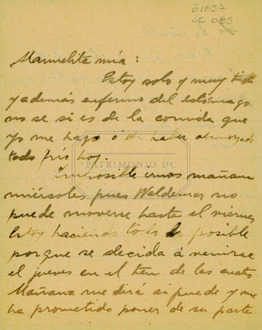 01857
Manuelita mía:
Estoy solo y muy
y además enfermo del estómago
no se si es de la comida que
yo me hago ó de haber almorzado
todo frío hoy.
PATRIMONIO UC
Imposible irnos mañana
miércoles pues Waldemar no
puede moverse hasta el viernes
Estoy haciendo todo lo posible
porque se decida á venirse
el jueves en el tren de las cuatro
Mañana me dirá si puede y me
ha prometido poner de su parte